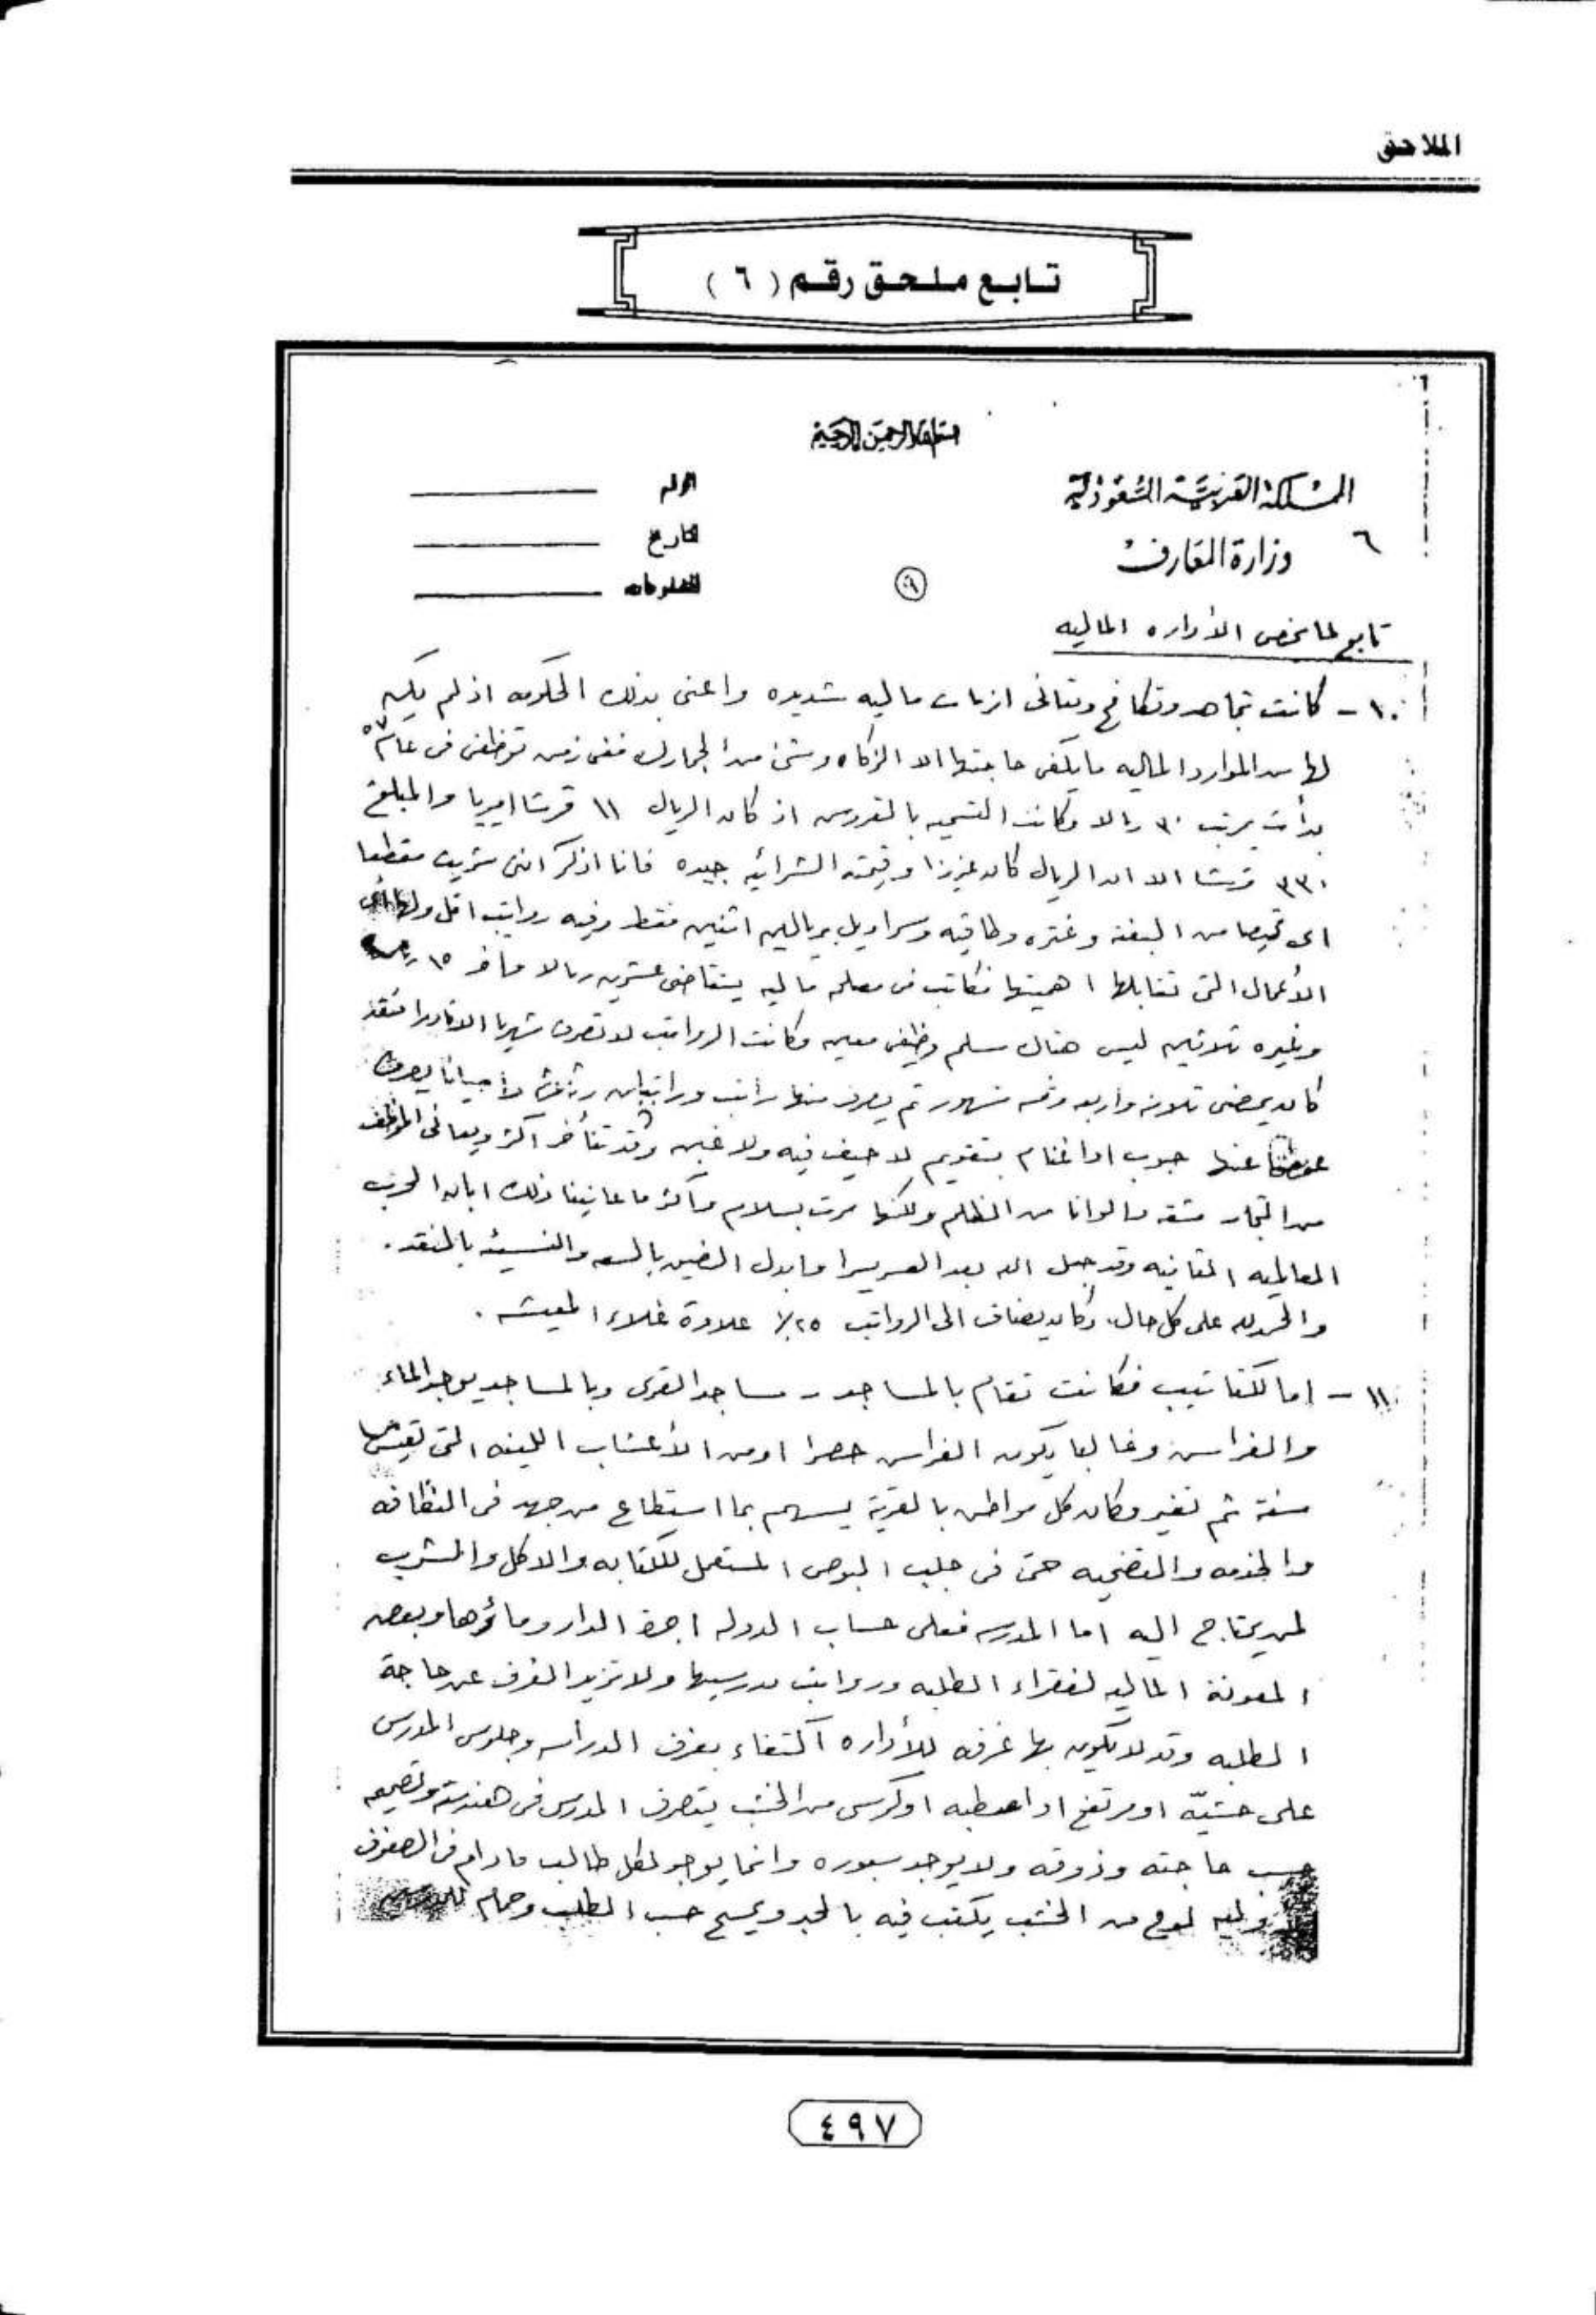 الملاحق
تابع ملحق رقم ( ٦ )
٦
بسم الله الرحمن الرحيم
المملكة العربية السعودية
وزارة المعارف
٦
الرقم
التاريخ
المشفوعات
تابع لما يخص الأداره الماليه
١٠ - كانت تجاهد وتكافح وتعانى ازمات ماليه شديده واعنى بذلك الحكومه اذ لم يكن
لها من الموارد الماليه ما يكفى حاجتها الا الزكاه وشئ من الجمارك ففى زمن توظفى فى عام ٥٧
بدأت بمرتب ٣٠ ريالا وكانت التسميه بالقروش اذ كان الريال ١١ قرشا اميريا والمبلغ
٣٣٠ قرشا الا ان الريال كان عزيزا وقيمته الشرائيه جيده فانا اذكر اننى شريت مقطعا
اى قميصا من البفته وغتره وطاقيه وسراويل بريالين اثنين فقط وفيه رواتب اقل ولها
الأعمال التى تقابلها اهميتها فكاتب فى مصلحه ماليه يتقاضى عشرين ريالا وآخر ١٥
وغيره ثلاثين ليس هناك سلم وظيفى معين وكانت الرواتب لا تصرف شهريا الا نادرا فقد
كان يمضى ثلاثه واربعه وخمسه شهور ثم يصرف منها راتب وراتبان واحيانا يصرف
عوضا عنها حبوب او اغنام بتقويم لا حيف فيه ولا غبن وقد تتأخر اكثر ويعانى الموظف
من التجار مشقه والوانا من الظلم ولكنها مرت بسلام واكثر ما عانينا ذلك ابان الحرب
العالميه الثانيه وقد جعل الله بعد العسر يسرا وابدل الضيق بالسعه والنسيئه بالنقد .
والحمد لله على كل حال، وكان يضاف الى الرواتب ٢٥٪ علاوة غلاء المعيشه .
١١ - اما الكتاتيب فكانت تقام بالمساجد - مساجد القرى وبالمساجد يوجد الماء
والفراش وغالبا يكون الفراش حصرا او من الأعشاب اللينه التى
سنة ثم تغير وكان كل مواطن بالقرية يسهم بما استطاع من جهد فى النظافه
والخدمه والتضحيه حتى فى جلب البوص المستعمل للكتابه والاكل والمشرب
لمن يحتاج اليه اما المدرسه فعلى حساب الدوله اجرة الدار وماؤها وبعض
المعونة الماليه لفقراء الطلبه ورواتب مدرسيها ولا تزيد الغرف عن حاجة
الطلبه وقد لا يكون بها غرفه للأداره اكتفاء بغرف الدراسه وجلوس المدرس
على حشيّه او مرتفع او مصطبه او كرسى من الخشب يتصرف المدرس فى هندسته وتصميمه
حسب حاجته وذوقه ولا يوجد سبوره وانما يوجد لكل طالب مادام فى الصفوف
لوح من الخشب يكتب فيه بالحبر ويمسح حسب الطلب
٤٩٧